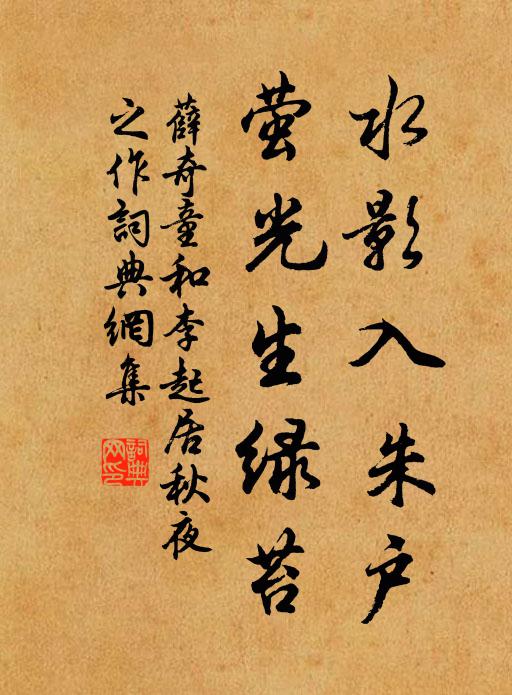 水影入朱户
萤光生绿苔
薛奇童和李起居秋夜
之作词典網集
詞典
网印